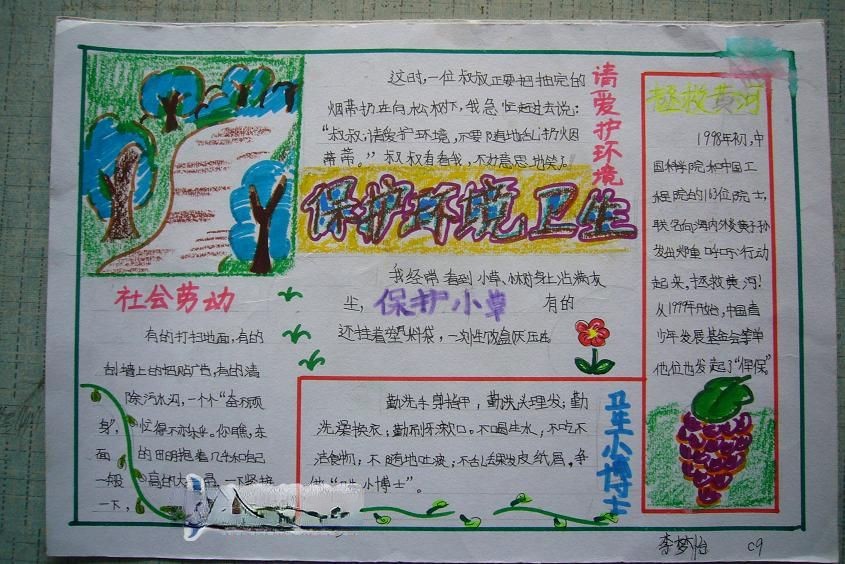 请爱护环境
这时,一位叔叔正要把抽完的
烟蒂扔在向松树下,我急忙赶过去说:
"叔叔,请爱护环境,不要随地乱扔烟
蒂蒂。"叔叔看看我,不好意思地笑了
保护环境卫生
我经常看到小草、小树身上沾满灰
尘,保护小草 有的
还挂着塑料袋,一次性饭盒
社会劳动
有的打扫地面,有的
刮墙上的
有的清
除污水沟,一个个"奋不顾
身",忙得不亦乐乎。你瞧,东
面的田明抱着几乎和自己
一般高的大
一下,
勤洗手剪指甲,勤洗头理发;勤
洗澡换衣,勤刷牙漱口。不喝生水,不吃不
洁食物;不随地吐痰,不乱丢果皮纸屑。争
做"卫生小博士"。
卫生小博士
拯救黄河
1998年初,中
国科学院和中国工
程院的163位院士,
联名向海内外炎黄子孙
发出郑重呼吁:行动
起来,拯救黄河!
从1999年开始,中国青
少年发展基金会等单
位也发起了"保
李梦怡 c9